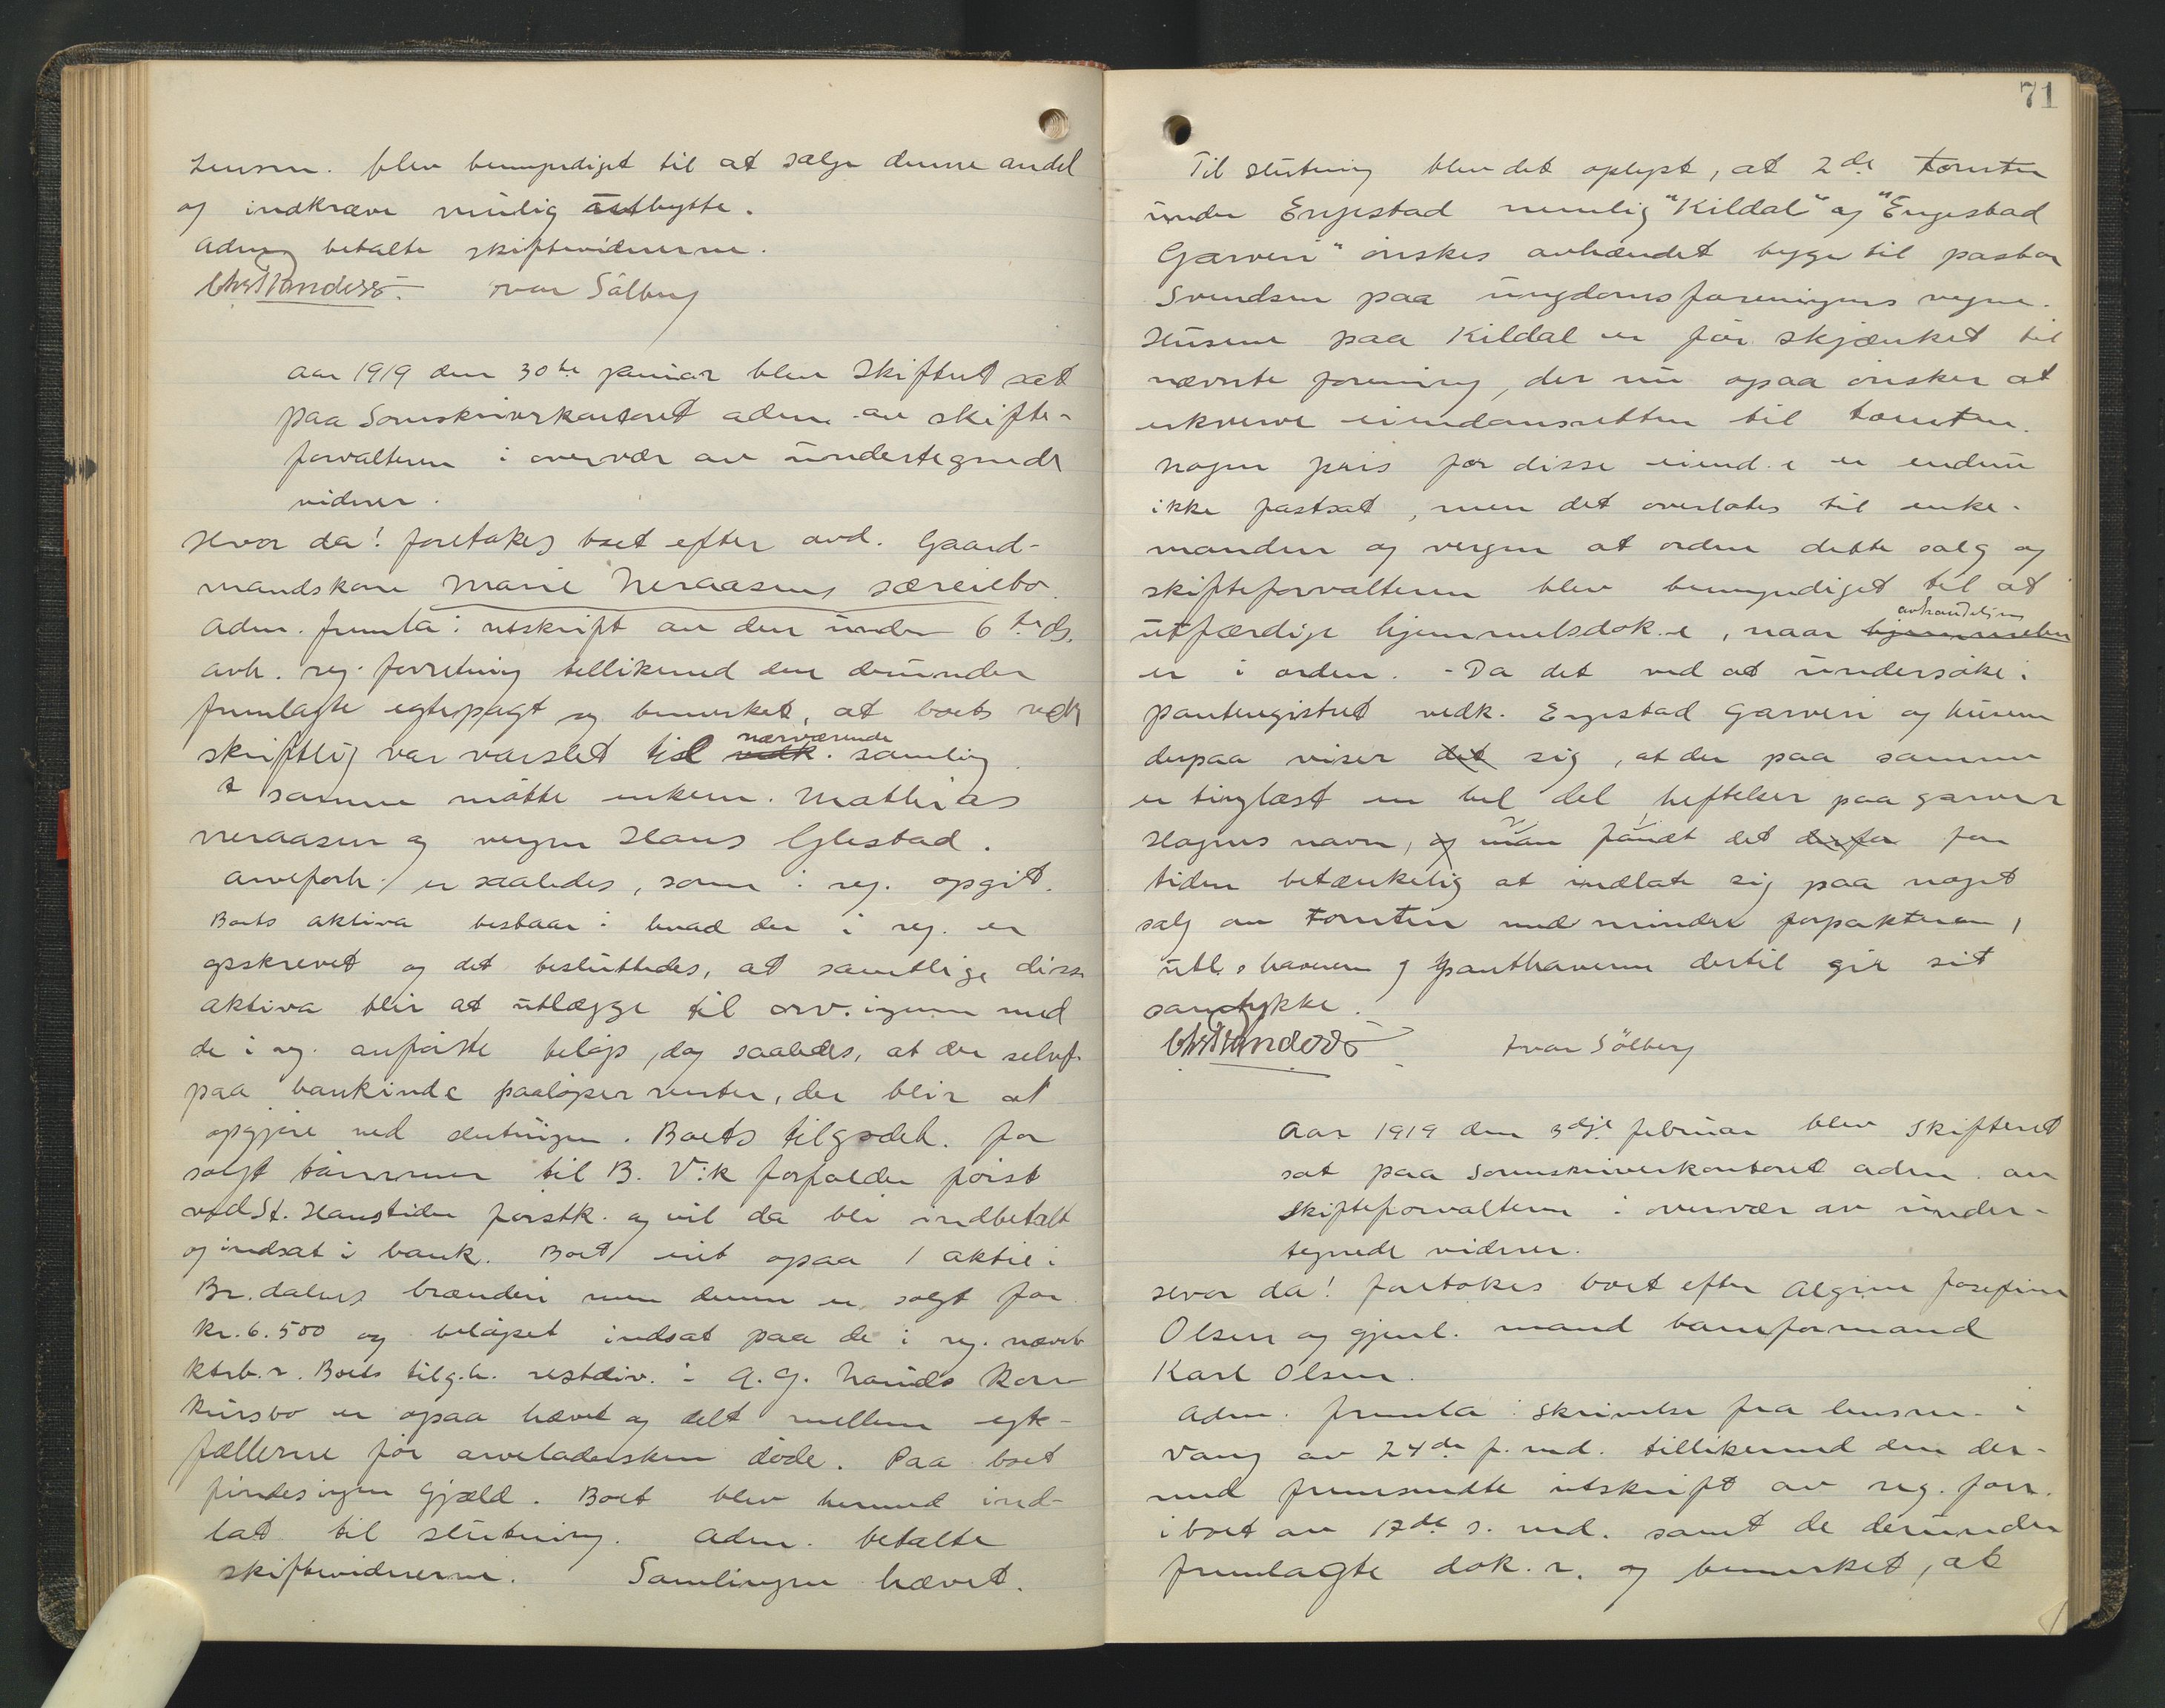 Lensm. blev bemyndiget til at sælge denne andel
og indkræve mulig utbytte.
Adm. betalte skiftevidnerne.
Ivar Sålberg
Aar 1919 den 30te januar blev Skifteret sat
paa Sorenskriverkontoret adm. av skifte-
forvalteren i overvær av undertegnede
vidner.
Hvor da! foretokes boet efter avd. Gaard-
mandskone Marie Neraasens særeiebo.
Adm. fremla: utskrift av den under 6te ds.
avh. reg. forretning tillikemed den derunder
fremlagte egtepagt og bemerket, at boets vedk
skriftlig var varslet til vedk. nærværende samling
I samme møtte enkem. Mathias
Neraasen og vergen Hans Glestad.
Arveforh. er saaledes, som i reg. opgit.
Boets aktiva bestaar i hvad der i reg. er
opskrevet og det besluttedes, at samtlige disse
aktiva blir at utlægge til arv.ingerne med
de i reg. anførte beløp, dog saaledes, at der selvf.
paa bankindsk. paaløper renter, der blir at
opgjøre ved slutningen. Boets tilgodeh. for
solgt tømmer til B. Vik forfalder først
ved St. Hanstider førstk. og vil da bli indbetalt
og indsat i bank. Boet eiet ogsaa 1 aktie i
Br.dalens brænderi men denne er solgt for
kr. 6.500 og beløpet indsat paa de i reg. nævnte
ktrb.r. Boets tilg.h. restdiv. i A. G. Konkursbo er ogsaa hævet og delt mellem egte-
fællerne før arveladersken døde. Paa boet
findes ingen Gjæld. Boet blev hermed ind-
lat til slutning. Adm. betalte
skiftevidnerne. Samlingen hævet.
71
Til slutning blev det oplyst, at 2de tomter
under Engestad nemlig "Kildal" og "Engestad
Garveri" ønskes avhændet begge til pastor
Svendsen paa ungdomsforeningens vegne.
Husene paa Kildal er før skjænket til
nævnte forening, der nu ogsaa ønsker at
erkverve eiendomsretten til tomten.
Nogen pris for disse eiend.e er endnu
ikke fastsat, men det overlates til enke-
manden og vergen at ordne dette salg og
skifteforvalteren blev bemyndiget til at
utfærdige hjemmelsdok.e, naar hjemmelen avhændelsen
er i orden. - Da det ved at undersøke i
pantregistret vedk. Engestad Garveri og husene
derpaa viser det sig, at der paa samme
er tinglæst en hel del heftelser paa garver
Hagens navn, og man fandt det derfor for
tiden betænkelig at indlate sig paa noget
salg av tomten med mindre forpakteren,
utl.shaveren og panthaverne dertil gir sit
samtykke.
Ivar Sölberg
Aar 1919 den 3dje februar blev Skifteret
sat paa Sorenskriverkontoret adm. av
Skifteforvalteren i overvær av under-
tegnede vidner.
Hvor da! foretokes boet efter Algine Josefine
Olsen og gjenl. mand baneformand
Karl Olsen.
Adm. fremla: Skrivelse fra lensm. i
Vang av 24de f. md. tillikemed den der-
med fremsendte utskrift av reg. forr.
i boet av 17de s. md. samt de derunder
fremlagte dok.r. og bemerket, at